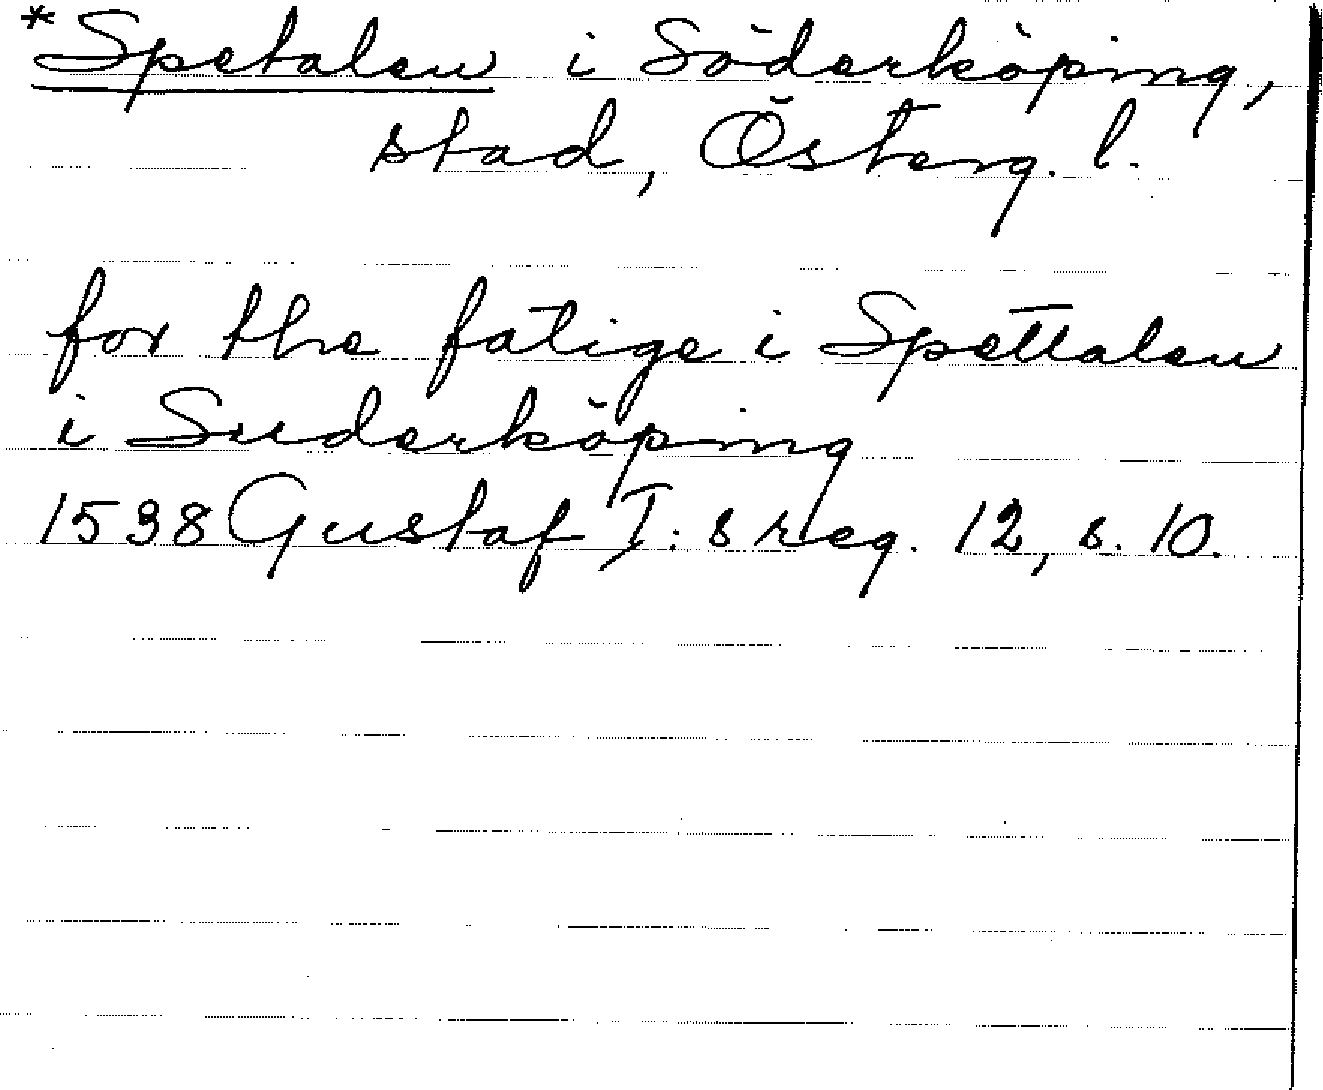 *Spetalen i Söderköping,
stad, Österg. l.
for the fatige i Spettalen
i Suderköping
1538 Gustaf I:s reg. 12, s. 10.